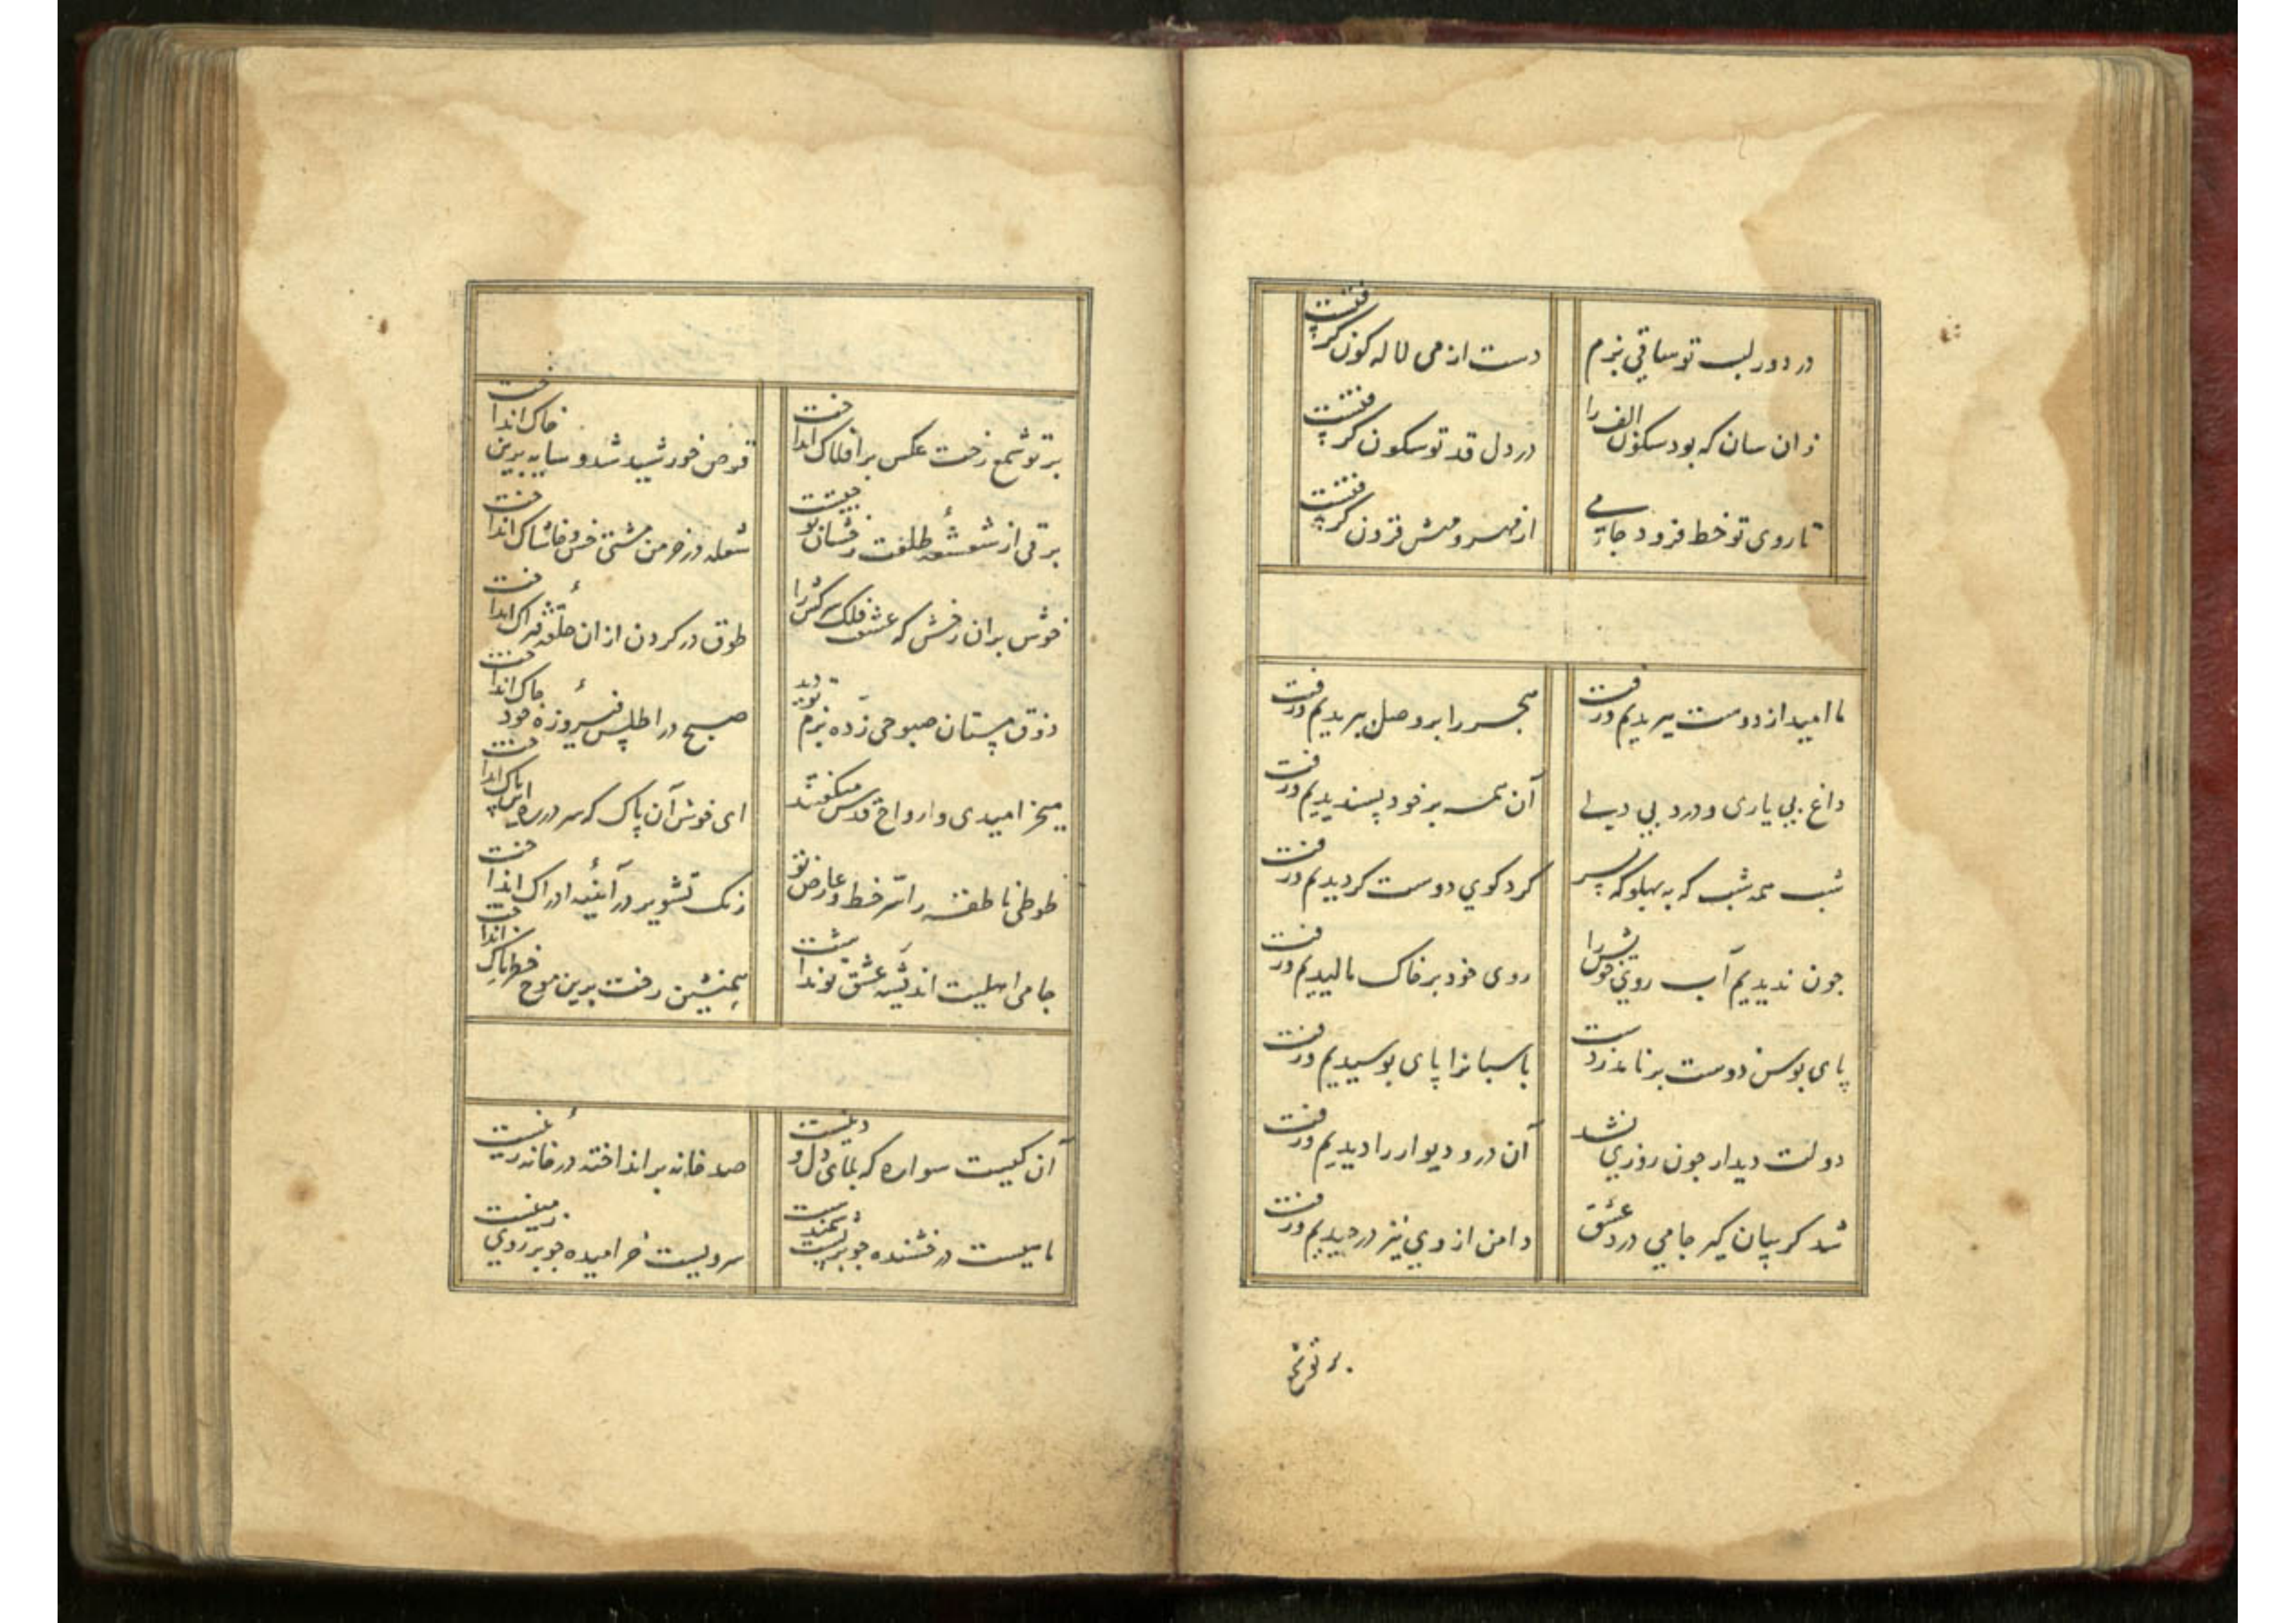 در دور لب تو ساقی بزم
دست از می لاله کون گرفتست
زان سان که بود سکون الف را
در دل قد تو سکون گرفتست
تا روی تو خط فزود جامی
از مهر و مهش فزون گرفتست
ما امید از دوست ببریدیم و رفت
هجر را بر وصل بگزیدیم و رفت
داغ بی یاری و درد بی دلی
آن همه بر خود پسندیدیم و رفت
شب همه شب که به پهلو که بسر
کرد کوی دوست کردیدیم و رفت
چون ندیدیم آب روی خویش را
روی خود بر خاک مالیدیم و رفت
پای بوس دوست بر نامد ز دست
پاسبانرا پای بوسیدیم و رفت
دولت دیدار چون روزی نشد
آن در و دیوار را دیدیم و رفت
شد کریبان کیر جامی درد عشق
دامن از وی نیز درچیدیم و رفت
پرتو شمع
پرتو شمع رخت عکس بر افلاک انداخت
قرص خورشید شد و سایه برین خاک انداخت
برقی از شعشعه طلعت رخشان تو جست
شعله در خرمن مشتی خس و خاشاک انداخت
خوش بران رخش که عشق فلک سرکش را
طوق در کردن از ان حلقه فتراک انداخت
ذوق مستان صبوحی زده بزم تو دید
صبح در اطلس فیروزه خود چاک انداخت
میخرامیدی و ارواح قدس میکفتند
ای خوش آن پاک که سر در ره این پاک انداخت
طوطی ناطقه را سر خط و عارض تو
زنک تشویر در آیینه ادراک انداخت
جامی اهلیت اندیشه عشق تو نداشت
همنشین رفت برین موج خطرناک انداخت
آن کیست سواره که بلای دل و دینست
صد خانه برانداخته در خانه زینست
ماهیست درخشنده چو بر پشت سمندست
سرویست خرامیده چو بر روی زمینست